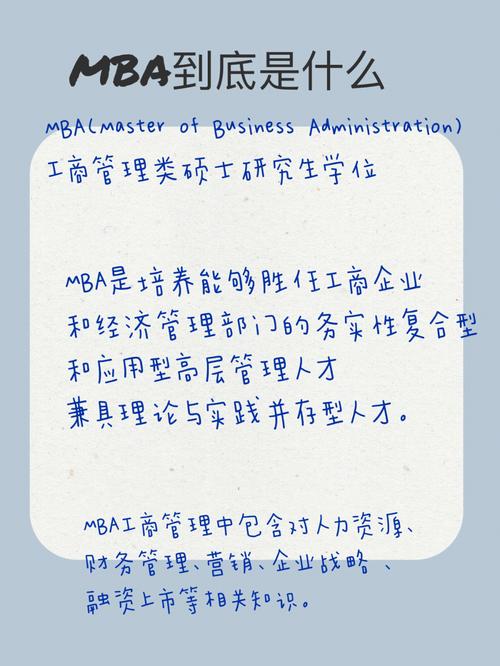 MBA到底是什么
MBA(Master of Business Administration)
工商管理类硕士研究生学位
MBA是培养能够胜任工商企业
和经济管理部门的务实性复合型
和应用型高层管理人才
兼具理论与实践并存型人才。
MBA工商管理中包含对人力资源、
财务管理、营销、企业战略、
融资上市等相关知识。